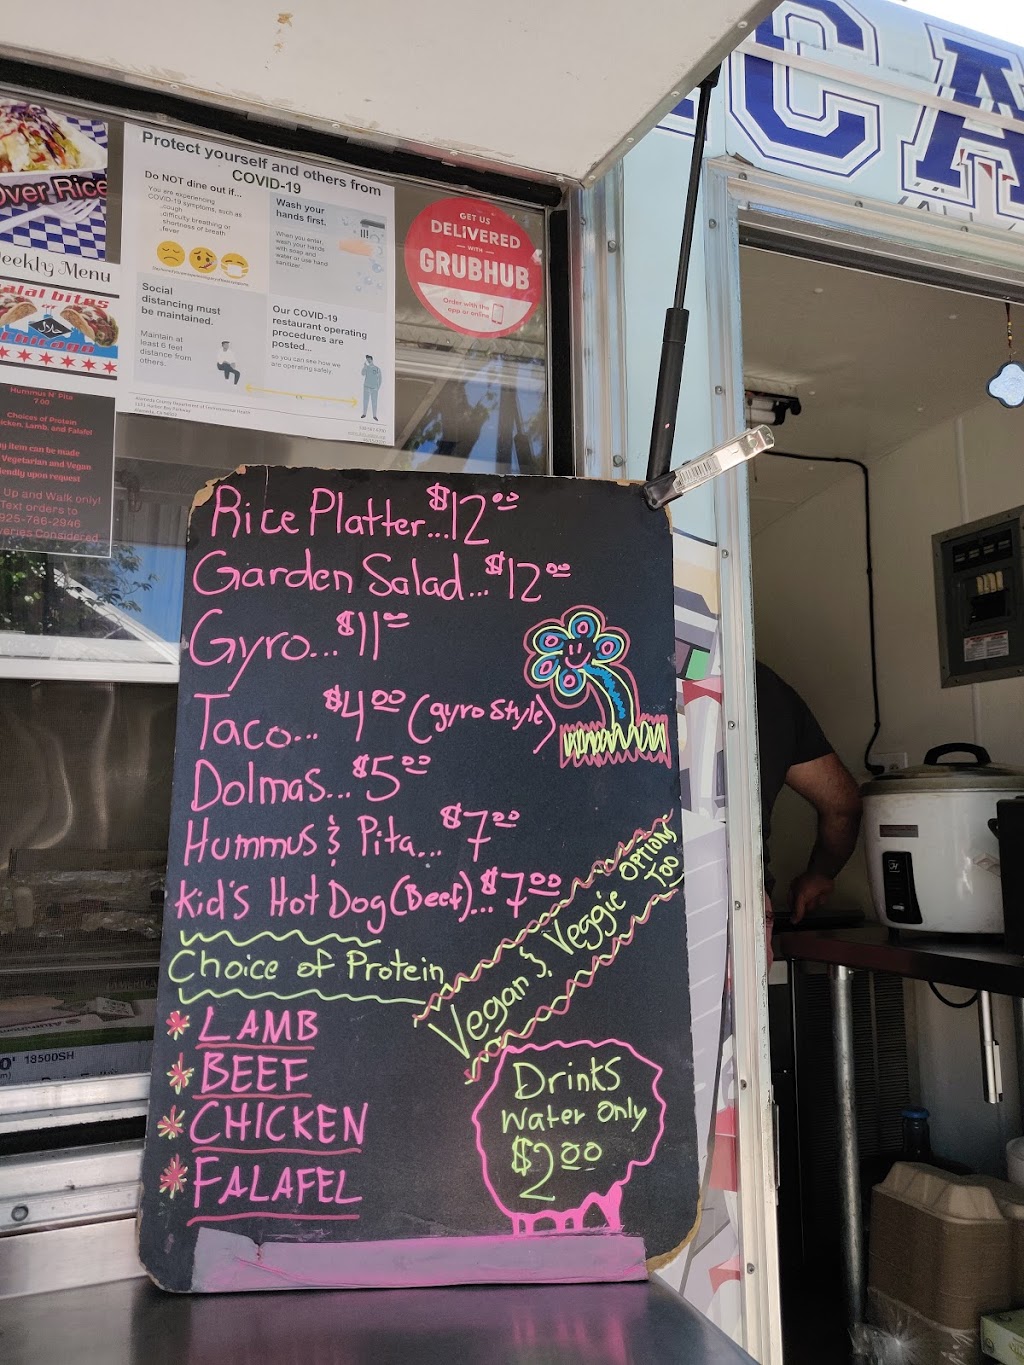 CA
Over Rice
Weekly Menu
halal bites
Chicago
Hummus N' Pita
7.00
Choices of Protein
Chicken, Lamb, and Falafel
Any item can be made
Vegetarian and Vegan
friendly upon request
Up and Walk only!
Text orders to
925-786-2946
Deliveries Considered
Protect yourself and others from
COVID-19
Do NOT dine out if...
You are experiencing
COVID-19 symptoms, such as
..cough
..difficulty breathing or
shortness of breath
..fever
Wash your
hands first.
When you enter,
wash your hands
with soap and
water or use hand
sanitizer.
Social
distancing must
be maintained.
Maintain at
least 6 feet
distance from
others.
Our COVID-19
restaurant operating
procedures are
posted...
so you can see how we
are operating safely.
Alameda County Department of Environmental Health
GET US
DELIVERED
WITH
GRUBHUB
Order with the
app or online
Rice Platter...$12.00
Garden Salad...$12.00
Gyro...$11.00
Taco... $4.00 (gyro style)
Dolmas...$5.00
Hummus & Pita... $7.00
Kid's Hot Dog (Beef)...$7.00
Choice of Protein
Vegan & Veggie OPTIONS
TOO
* LAMB
* BEEF
* CHICKEN
* FALAFEL
Drinks
Water only
$2.00
18500SH